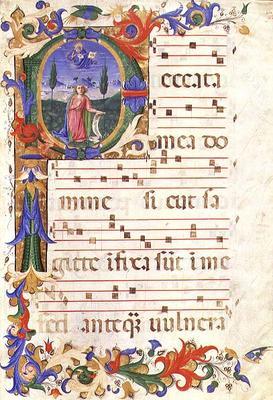 Peccata
mea do
mine si cut sa
gitte ifixa sūt i me
sed anteq̄ vulnera